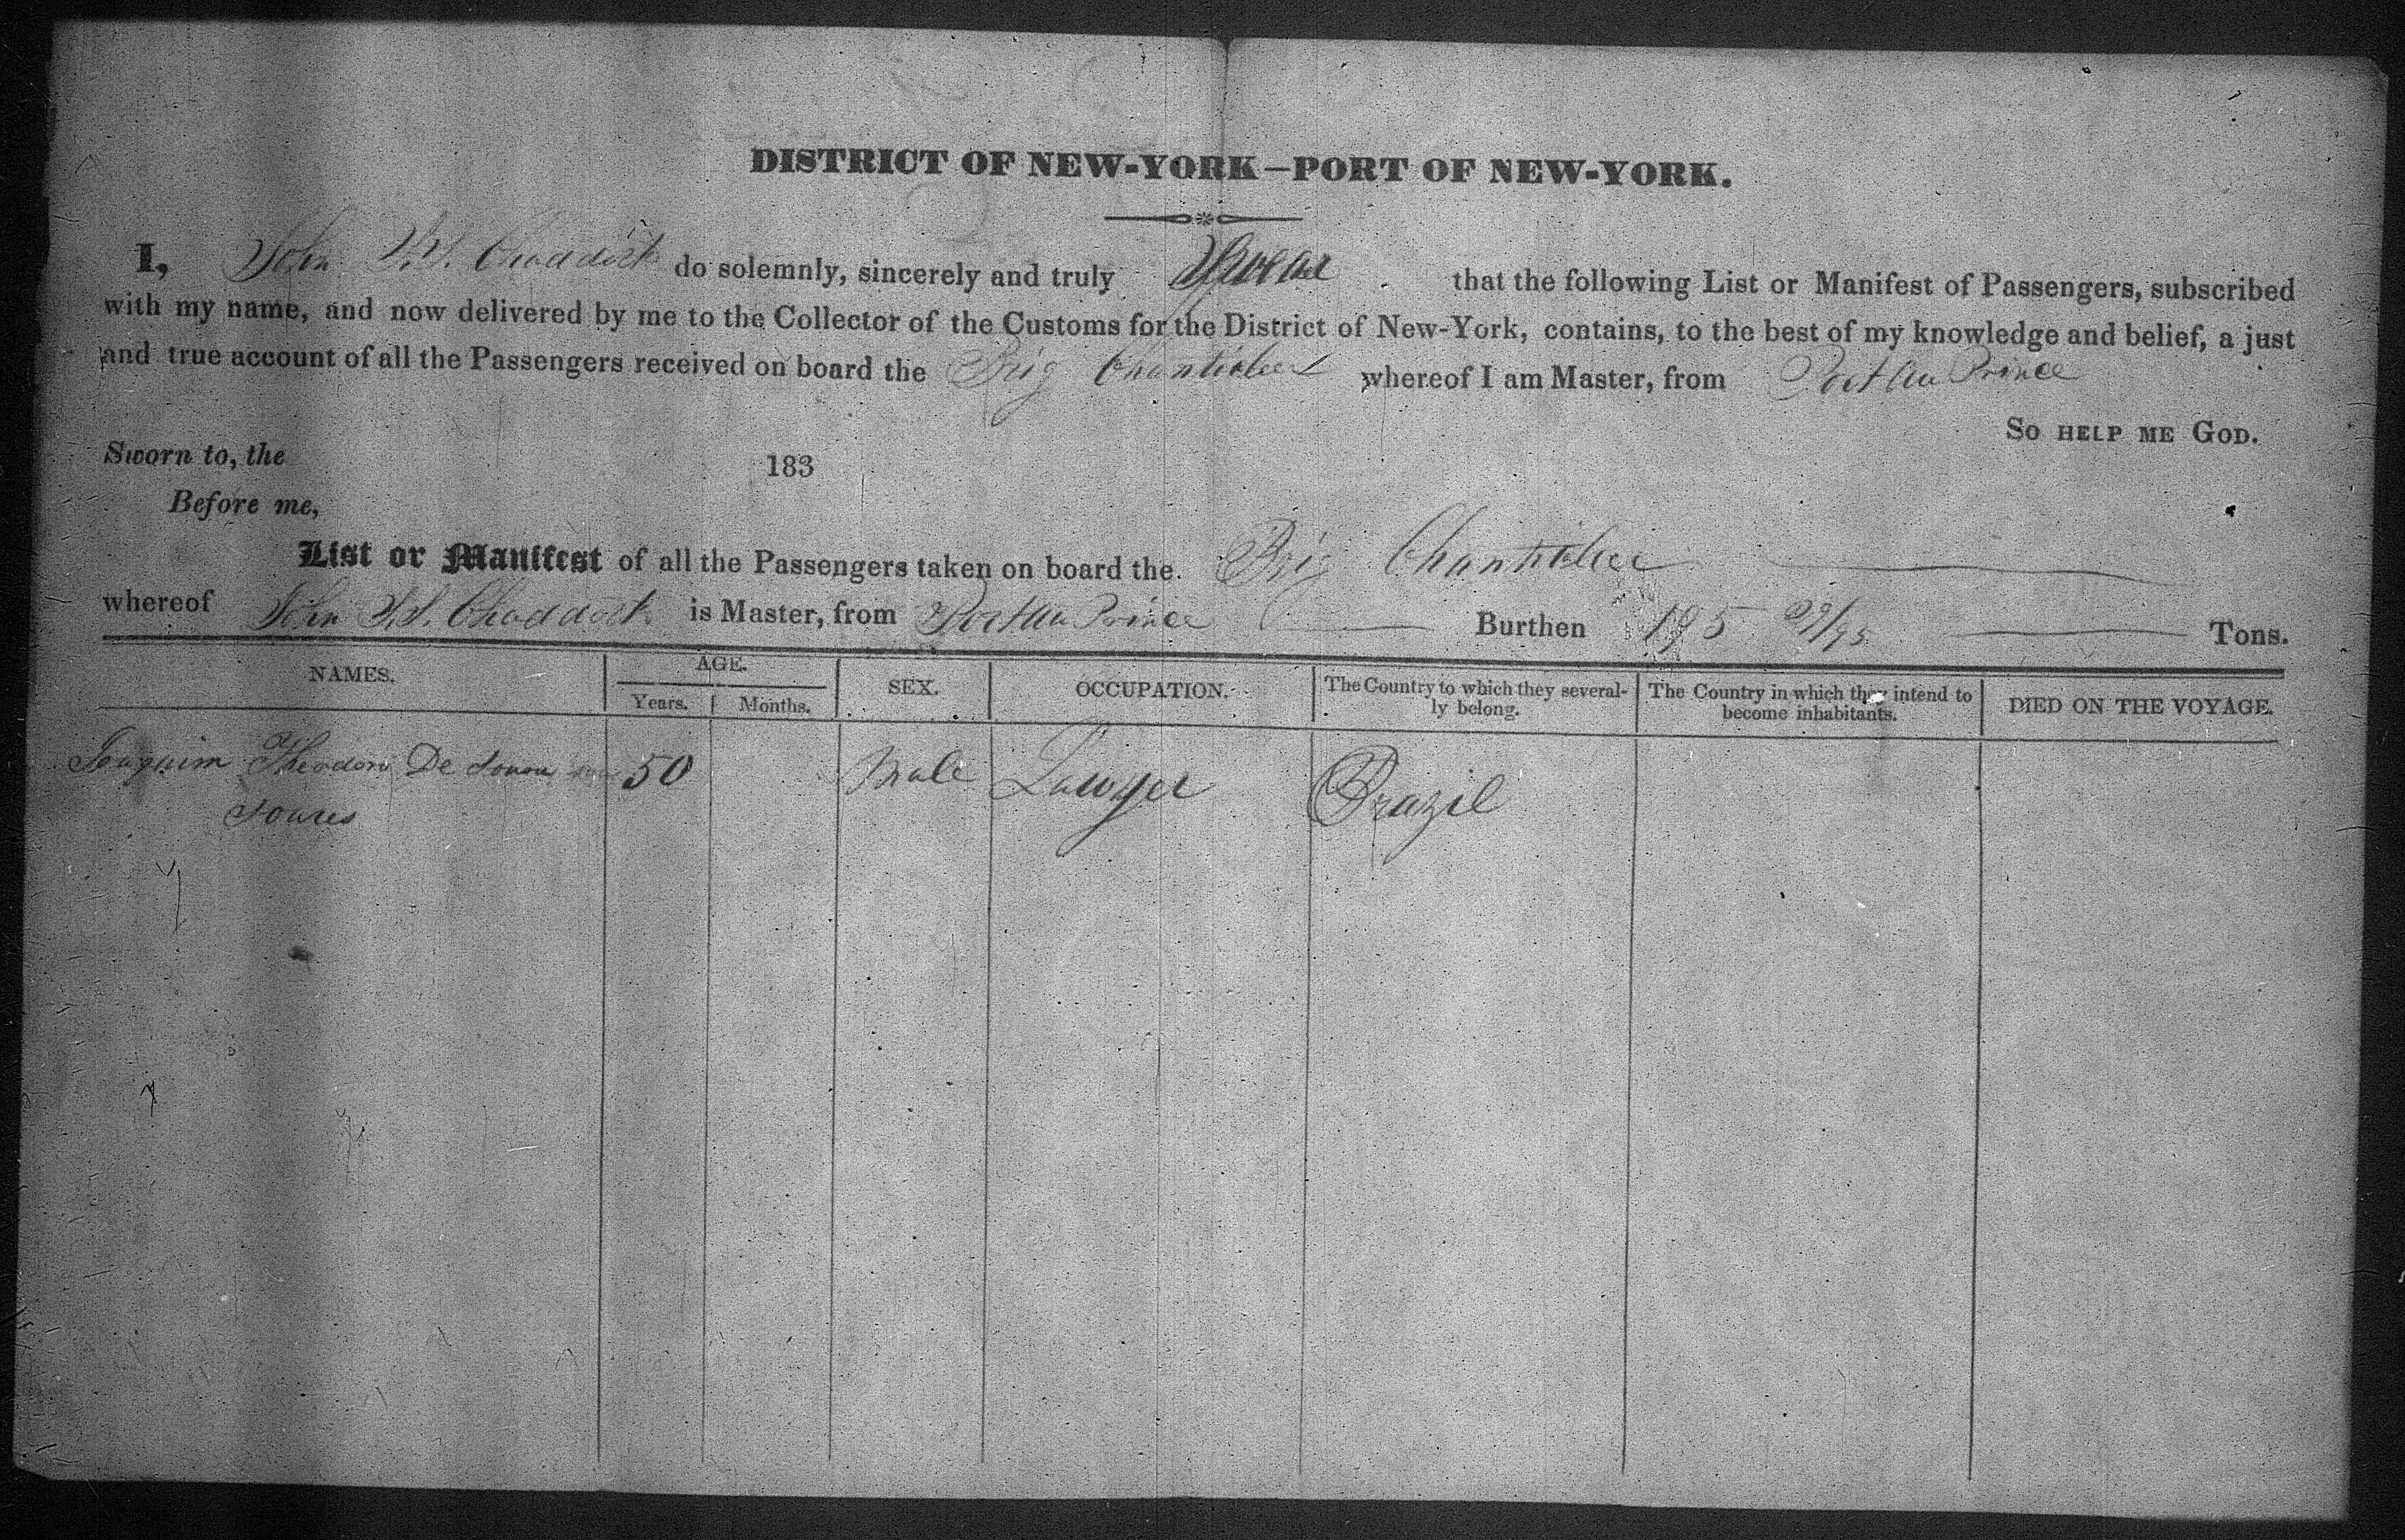 DISTRICT OF NEW-YORK—PORT OF NEW-YORK.
I, John Chaddock do solemnly, sincerely and truly Swear that the following List or Manifest of Passengers, subscribed
with my name, and now delivered by me to the Collector of the Customs for the District of New-York, contains, to the best of my knowledge and belief, a just
and true account of all the Passengers received on board the Brig Chanticleer whereof I am Master, from Port Au Prince
SO HELP ME GOD.
Sworn to, the 183
Before me,
List or Manifest of all the Passengers taken on board the Brig Chanticleer
whereof John Chaddock is Master, from Port Au Prince Burthen 195 Tons.
NAMES. AGE. SEX. OCCUPATION. The Country to which they several- The Country in which they intend to DIED ON THE VOYAGE.
Years. Months. ly belong. become inhabitants.
Joaquim Theodoro De 50 Male Lawyer Brazil
Soares